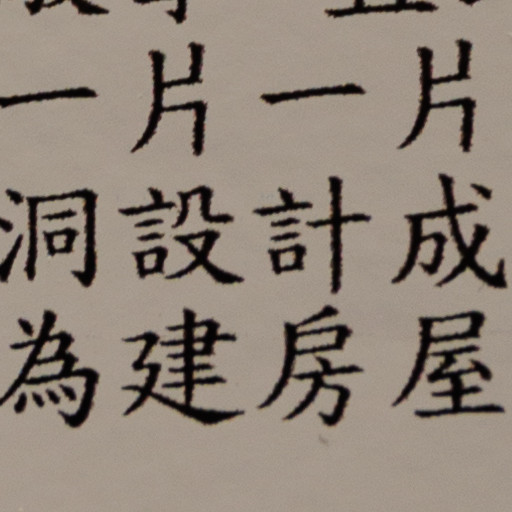 一片一片
洞設計成
為建房屋